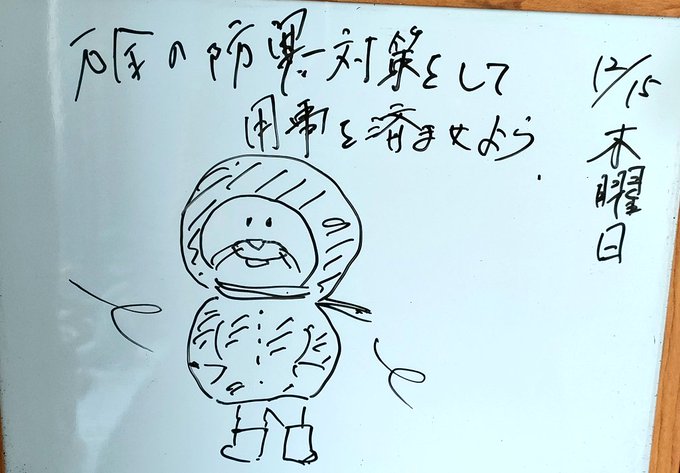 の防寒対策をして
用事を済ませよう.
12/15 木曜日